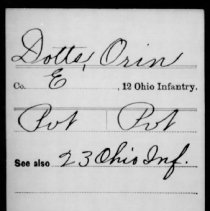 Dotte, Orin
Co. E, 12 Ohio Infantry.
Pvt Pvt
See also 23 Ohio Inf.